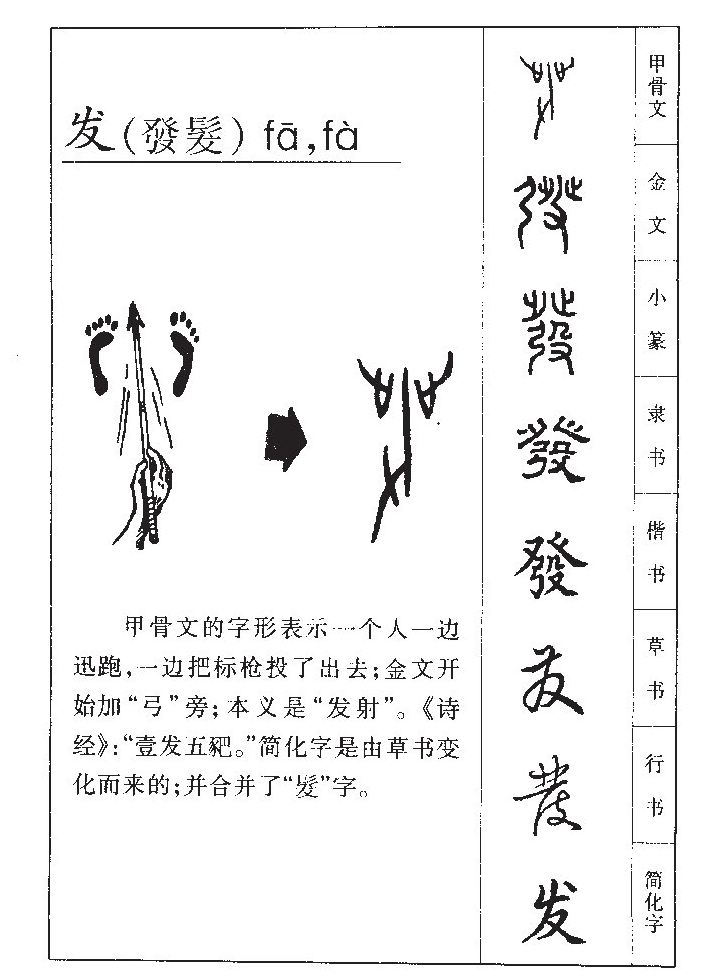 发(發髮) fā,fà
甲骨文的字形表示一个人一边
迅跑,一边把标枪投了出去;金文开
始加“弓”旁;本义是“发射”。《诗
经》:“壹发五豝。”简化字是由草书变
化而来的;并合并了“髮”字。
甲骨文
金文
發
小篆
發
隶书
發
楷书
發
草书
发
行书
發
简化字
发